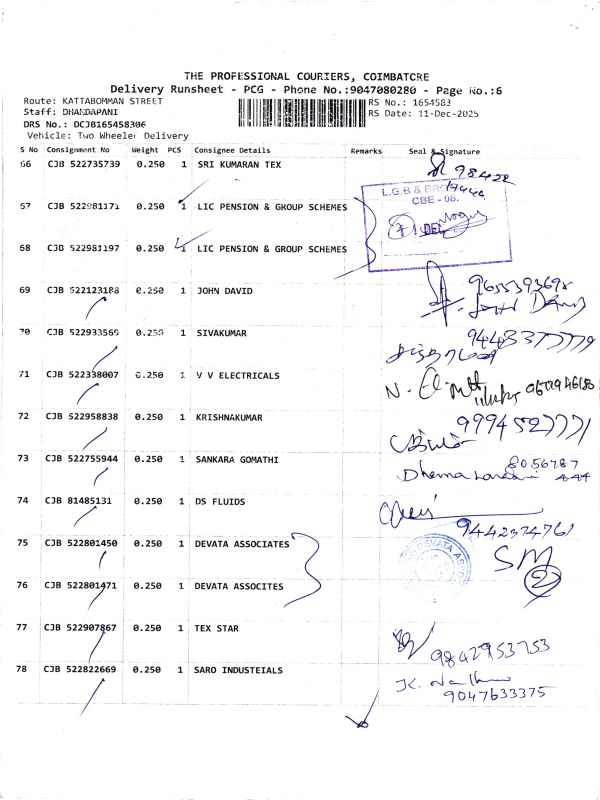 THE PROFESSIONAL COURIERS, COIMBATORE
Delivery Runsheet - PCG - Phone No.:9047080280 - Page No.:6
Route: KATTABOMMAN STREET RS No.: 1654583
Staff: DHANDAPANI RS Date: 11-Dec-2025
DRS No.: DCJB165458306
Vehicle: Two Wheeler Delivery
S No Consignment No Weight PCS Consignee Details Remarks Seal & Signature
66 CJB 522735739 0.250 1 SRI KUMARAN TEX
L.G.B & BRO
CBE - 06.
67 CJB 522981171 0.250 1 LIC PENSION & GROUP SCHEMES
68 CJB 522981197 0.250 1 LIC PENSION & GROUP SCHEMES
69 CJB 522123188 0.250 1 JOHN DAVID
70 CJB 522933569 0.250 1 SIVAKUMAR
71 CJB 522338007 0.250 1 V V ELECTRICALS
72 CJB 522958838 0.250 1 KRISHNAKUMAR
73 CJB 522755944 0.250 1 SANKARA GOMATHI
74 CJB 81485131 0.250 1 DS FLUIDS
9442374761
75 CJB 522801450 0.250 1 DEVATA ASSOCIATES
SM
2
76 CJB 522801471 0.250 1 DEVATA ASSOCITES
77 CJB 522907867 0.250 1 TEX STAR
9842953753
78 CJB 522822669 0.250 1 SARO INDUSTEIALS
9047633375